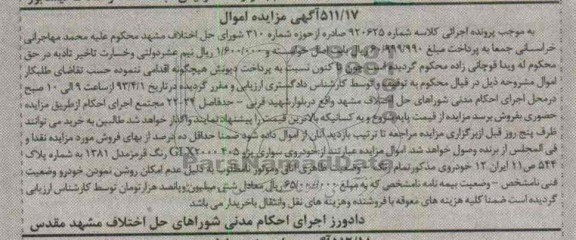 ۵۱۱/۱۷آگهی مزایده اموال
به موجب پرونده اجرائی کلاسه شماره ۹۲۰۶۲۵ صادره ازحوزه شماره ۳۱۰ شورای حل اختلاف مشهد محکوم علیه محمد مهاجرانی
خراسانی جمعا به پرداخت مبلغ ریال بابت اصل خواسته و ۱/۶۰۰/۰۰۰ ریال نیم عشردولتی وخسارت تاخیر تادیه در حق
محکوم له ویدا قوچانی زاده محکوم گردیده تاکنون نسبت به پرداخت دیونش هیچگونه اقدامی ننموده حسب تقاضای طلبکار
اموال مشروحه ذیل در قبال محکوم به توقیف وتوسط کارشناس دادگستری ارزیابی و مقرر گردیده درتاریخ ۹۳/۴/۱ ازساعت ۹ الی ۱۰ صبح
درمحل اجرای احکام مدنی شوراهای حل اختلاف مشهد واقع دربلوارشهید قرنی - حدفاصل ۲۲-۲۴ مجتمع اجرای احکام ازطریق مزایده
حضوری بفروش برسد مزایده از قیمت پایه شروع و به کسانیکه بالاترین قیمت را پیشنهاد نمایند واگذار خواهد شد طالبین به خرید می توانند
ظرف پنج روز قبل ازبرگزاری مزایده مراجعه تا ترتیب بازدید آنان از اموال داده شود ضمنا حداقل ده درصد از بهای فروش مورد مزایده نقدا و
فی المجلس از برنده وصول خواهد شد. اموال مزایده عبارتند از خودروی سواری پژو ۴۰۵ GLX۲۰۰۰ رنگ قرمز مدل ۱۳۸۱ به شماره پلاک
۵۴۴ ص۱۱ ایران ۱۲ خودروی مذکور تمام رنگ - وضعیت ظاهری اتاق وموتور نامطلوب به دلیل عدم امکان روشن نمودن خودرو وضعیت
فنی نامشخص - وضعیت بیمه نامه نامشخص که به مبلغ ریال معادل شش میلیون وپانصد هزارتومان توسط کارشناس ارزیابی
گردیده است ضمنا کلیه هزینه های معوقه با فروشنده وهزینه های نقل وانتقال باخریدار می باشد
دادورز اجرای احکام مدنی شوراهای حل اختلاف مشهد مقدس
ParsNamadData